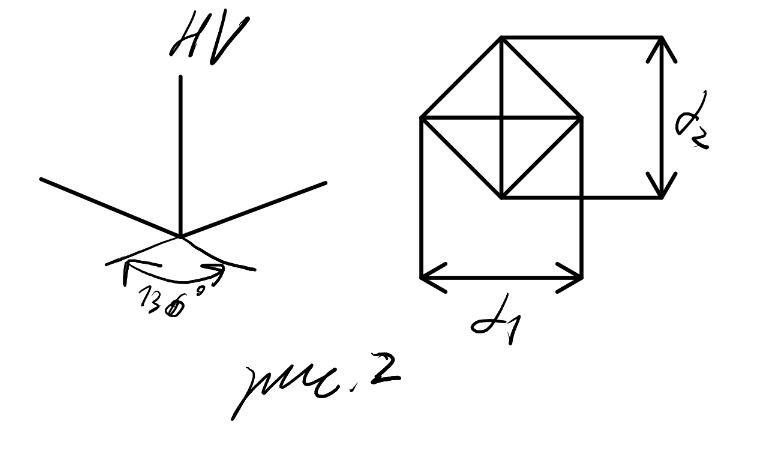 HV
136°
d2
d1
рис. 2